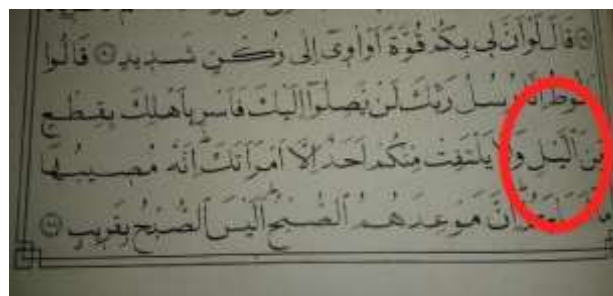 قَالَ لَوْ أَنَّ لِي بِكُمْ قُوَّةً أَوْ آوِي إِلَى رُكْنٍ شَدِيدٍ ۝ قَالُوا
يَلُوطُ إِنَّا رُسُلُ رَبِّكَ لَنْ يَصِلُوا إِلَيْكَ فَأَسْرِ بِأَهْلِكَ بِقِطْعٍ
مِنَ اللَّيْلِ وَلَا يَلْتَفِتْ مِنكُمْ أَحَدٌ إِلَّا امْرَأَتَكَ إِنَّهُ مُصِيبُهَا
مَا أَصَابَهُمْ إِنَّ مَوْعِدَهُمُ الصُّبْحُ أَلَيْسَ الصُّبْحُ بِقَرِيبٍ